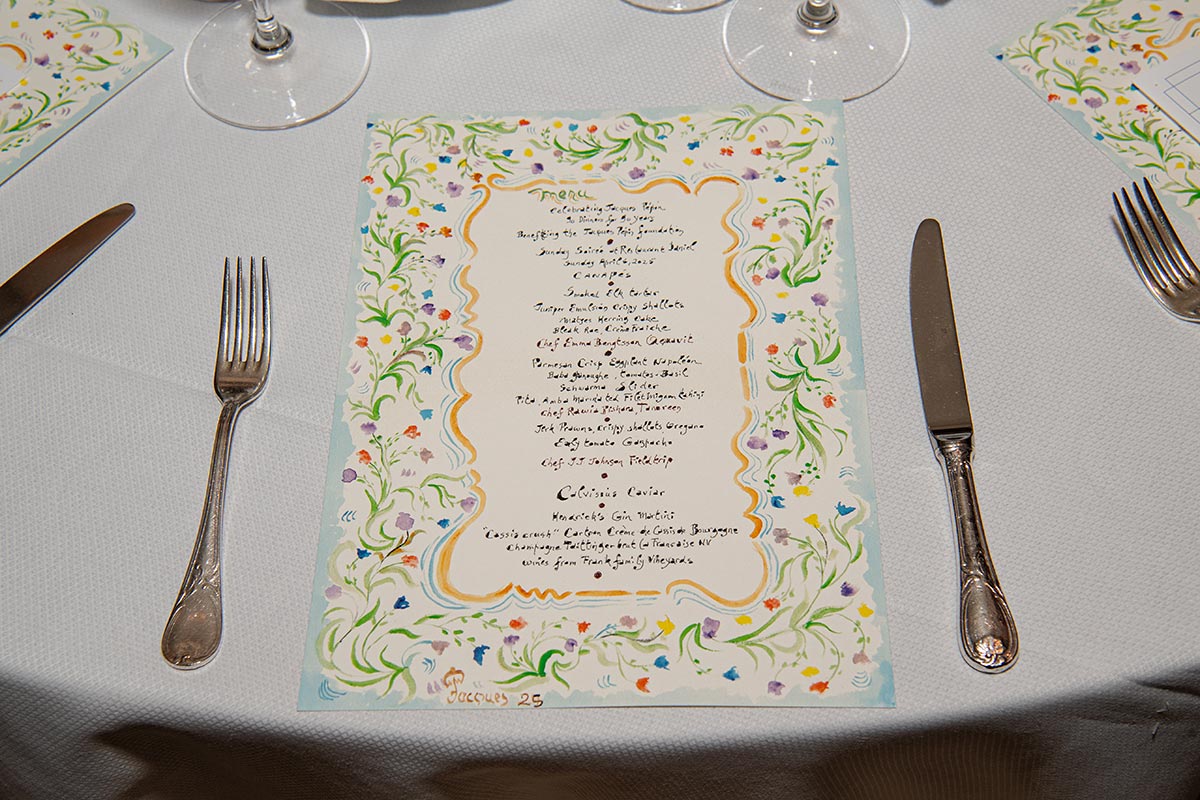 menu
Celebrating Jacques Pépin
90 Dinners for 90 years
Benefiting the Jacques Pépin foundation
Sunday Soirée at Restaurant Daniel
Sunday April 6, 2025
CANAPÉS
Smoked Elk tartar
Juniper Emulsion Crispy Shallots
Matjes Herring Cake
Bleak Roe, Crème Fraiche
Chef Emma Bengtsson Aquavit
Parmesan Crisp Eggplant Napoléon
Baba ganoughe, tomatoes-Basil
Schwarma Slider
Pita, Amba Marinated Filet Mignon tahini
Chef Rawia Bishara, Tanoreen
Jerk Prawns, Crispy shallots, Oregano
Early tomato Gaspacho
Chef J.J Johnson Fieldtrip
Calvisius Caviar
Hendrick's Gin Martini
"Cassis crush" Cartron Crème de Cassis de Bourgogne
Champagne Taittinger brut La Francaise NV
wines from Frank family Vineyards
Jacques 25